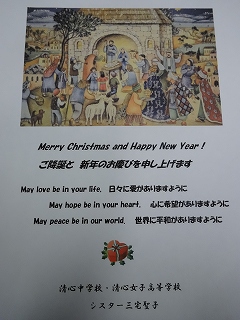 Merry Christmas and Happy New Year !
ご降誕と 新年のお慶びを申し上げます
May love be in your life, 日々に愛がありますように
May hope be in your heart, 心に希望がありますように
May peace be in our world, 世界に平和がありますように
清心中学校・清心女子高等学校
シスター三宅聖子